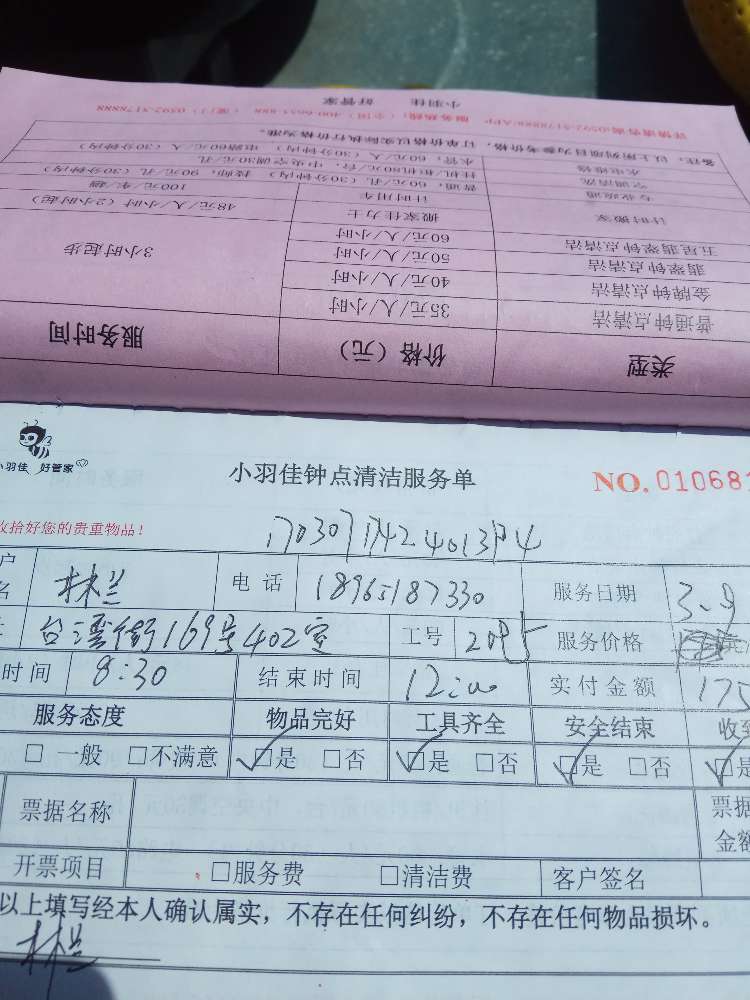 类型 价格（元） 服务时间
普通钟点清洁 35元/人/小时
金牌钟点清洁 40元/人/小时
翡翠钟点清洁 50元/人/小时 3小时起步
五星翡翠钟点清洁 60元/人/小时
计时搬家 搬家佳力士 48元/人/小时（2小时起）
计时用车 100元/车/趟
专业疏通 普通：60元/孔（30分钟内） 技师：90元/孔（30分钟内）
空调清洗 挂机/柜机80元/台，中央空调30元/孔
水电维修 水管：60元/人（30分钟内） 电路60元/人（30分钟内）
备注：以上列项目为参考价格，订单价格以实际执行价格为准。
服务热线：（全国） （厦门）0592-5178888
小羽佳 好管家
小羽佳 好管家
小羽佳钟点清洁服务单 NO.010681
收拾好您的贵重物品！
户名 林兰 电话 18965187330 服务日期 3.9
台湾街169号402室 工号 服务价格
时间 8:30 结束时间 12:00 实付金额 175
服务态度 物品完好 工具齐全 安全结束 收到
□一般 □不满意 □是 □否 □是 □否 □是 □否 □是
票据名称 票据金额
开票项目 □服务费 □清洁费 客户签名
以上填写经本人确认属实，不存在任何纠纷，不存在任何物品损坏。
林兰